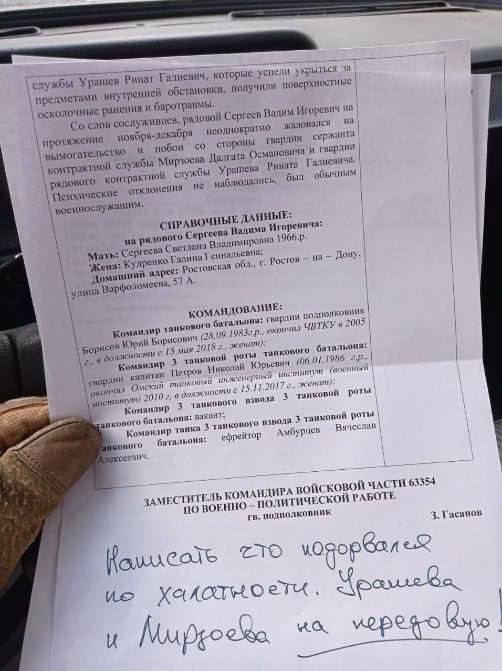 службы Урашев Ринат Галиевич, которые успели укрыться за
предметами внутренней обстановки, получили поверхностные
осколочные ранения и баротравмы.
Со слов сослуживцев, рядовой Сергеев Вадим Игоревич на
протяжение ноября-декабря неоднократно жаловался на
вымогательство и побои со стороны гвардии сержанта
контрактной службы Мирзоева Далгата Османовича и гвардии
рядового контрактной службы Урашева Рината Галиевича.
Психические отклонения не наблюдались, был обычным
военнослужащим.
СПРАВОЧНЫЕ ДАННЫЕ:
на рядового Сергеева Вадима Игоревича:
Мать: Сергеева Светлана Владимировна 1966.р.
Жена: Кудренко Галина Геннальевна;
Домашний адрес: Ростовская обл., г. Ростов – на – Дону,
улица Варфоломеева, 57 А.
КОМАНДОВАНИЕ:
Командир танкового батальона: гвардии подполковник
Борисов Юрий Борисович (28.09.1983г.р., окончил ЧВТКУ в 2005
г., в должности с 15 мая 2018 г., женат);
Командир 3 танковой роты танкового батальона:
гвардии капитан Петров Николай Юрьевич (06.01.1986 г.р.,
окончил Омский танковый инженерный институт (военный
институт) 2010 г, в должности с 15.11.2017 г., женат);
Командир 3 танкового взвода 3 танковой роты
танкового батальона: вакант;
Командир танка 3 танкового взвода 3 танковой роты
танкового батальона: ефрейтор Амбурцев Вячеслав
Алексеевич.
ЗАМЕСТИТЕЛЬ КОМАНДИРА ВОЙСКОВОЙ ЧАСТИ 63354
ПО ВОЕННО – ПОЛИТИЧЕСКОЙ РАБОТЕ
гв. подполковник З. Гасанов
Написать что подорвался
по халатности. Урашева
и Мирзоева на передовую!